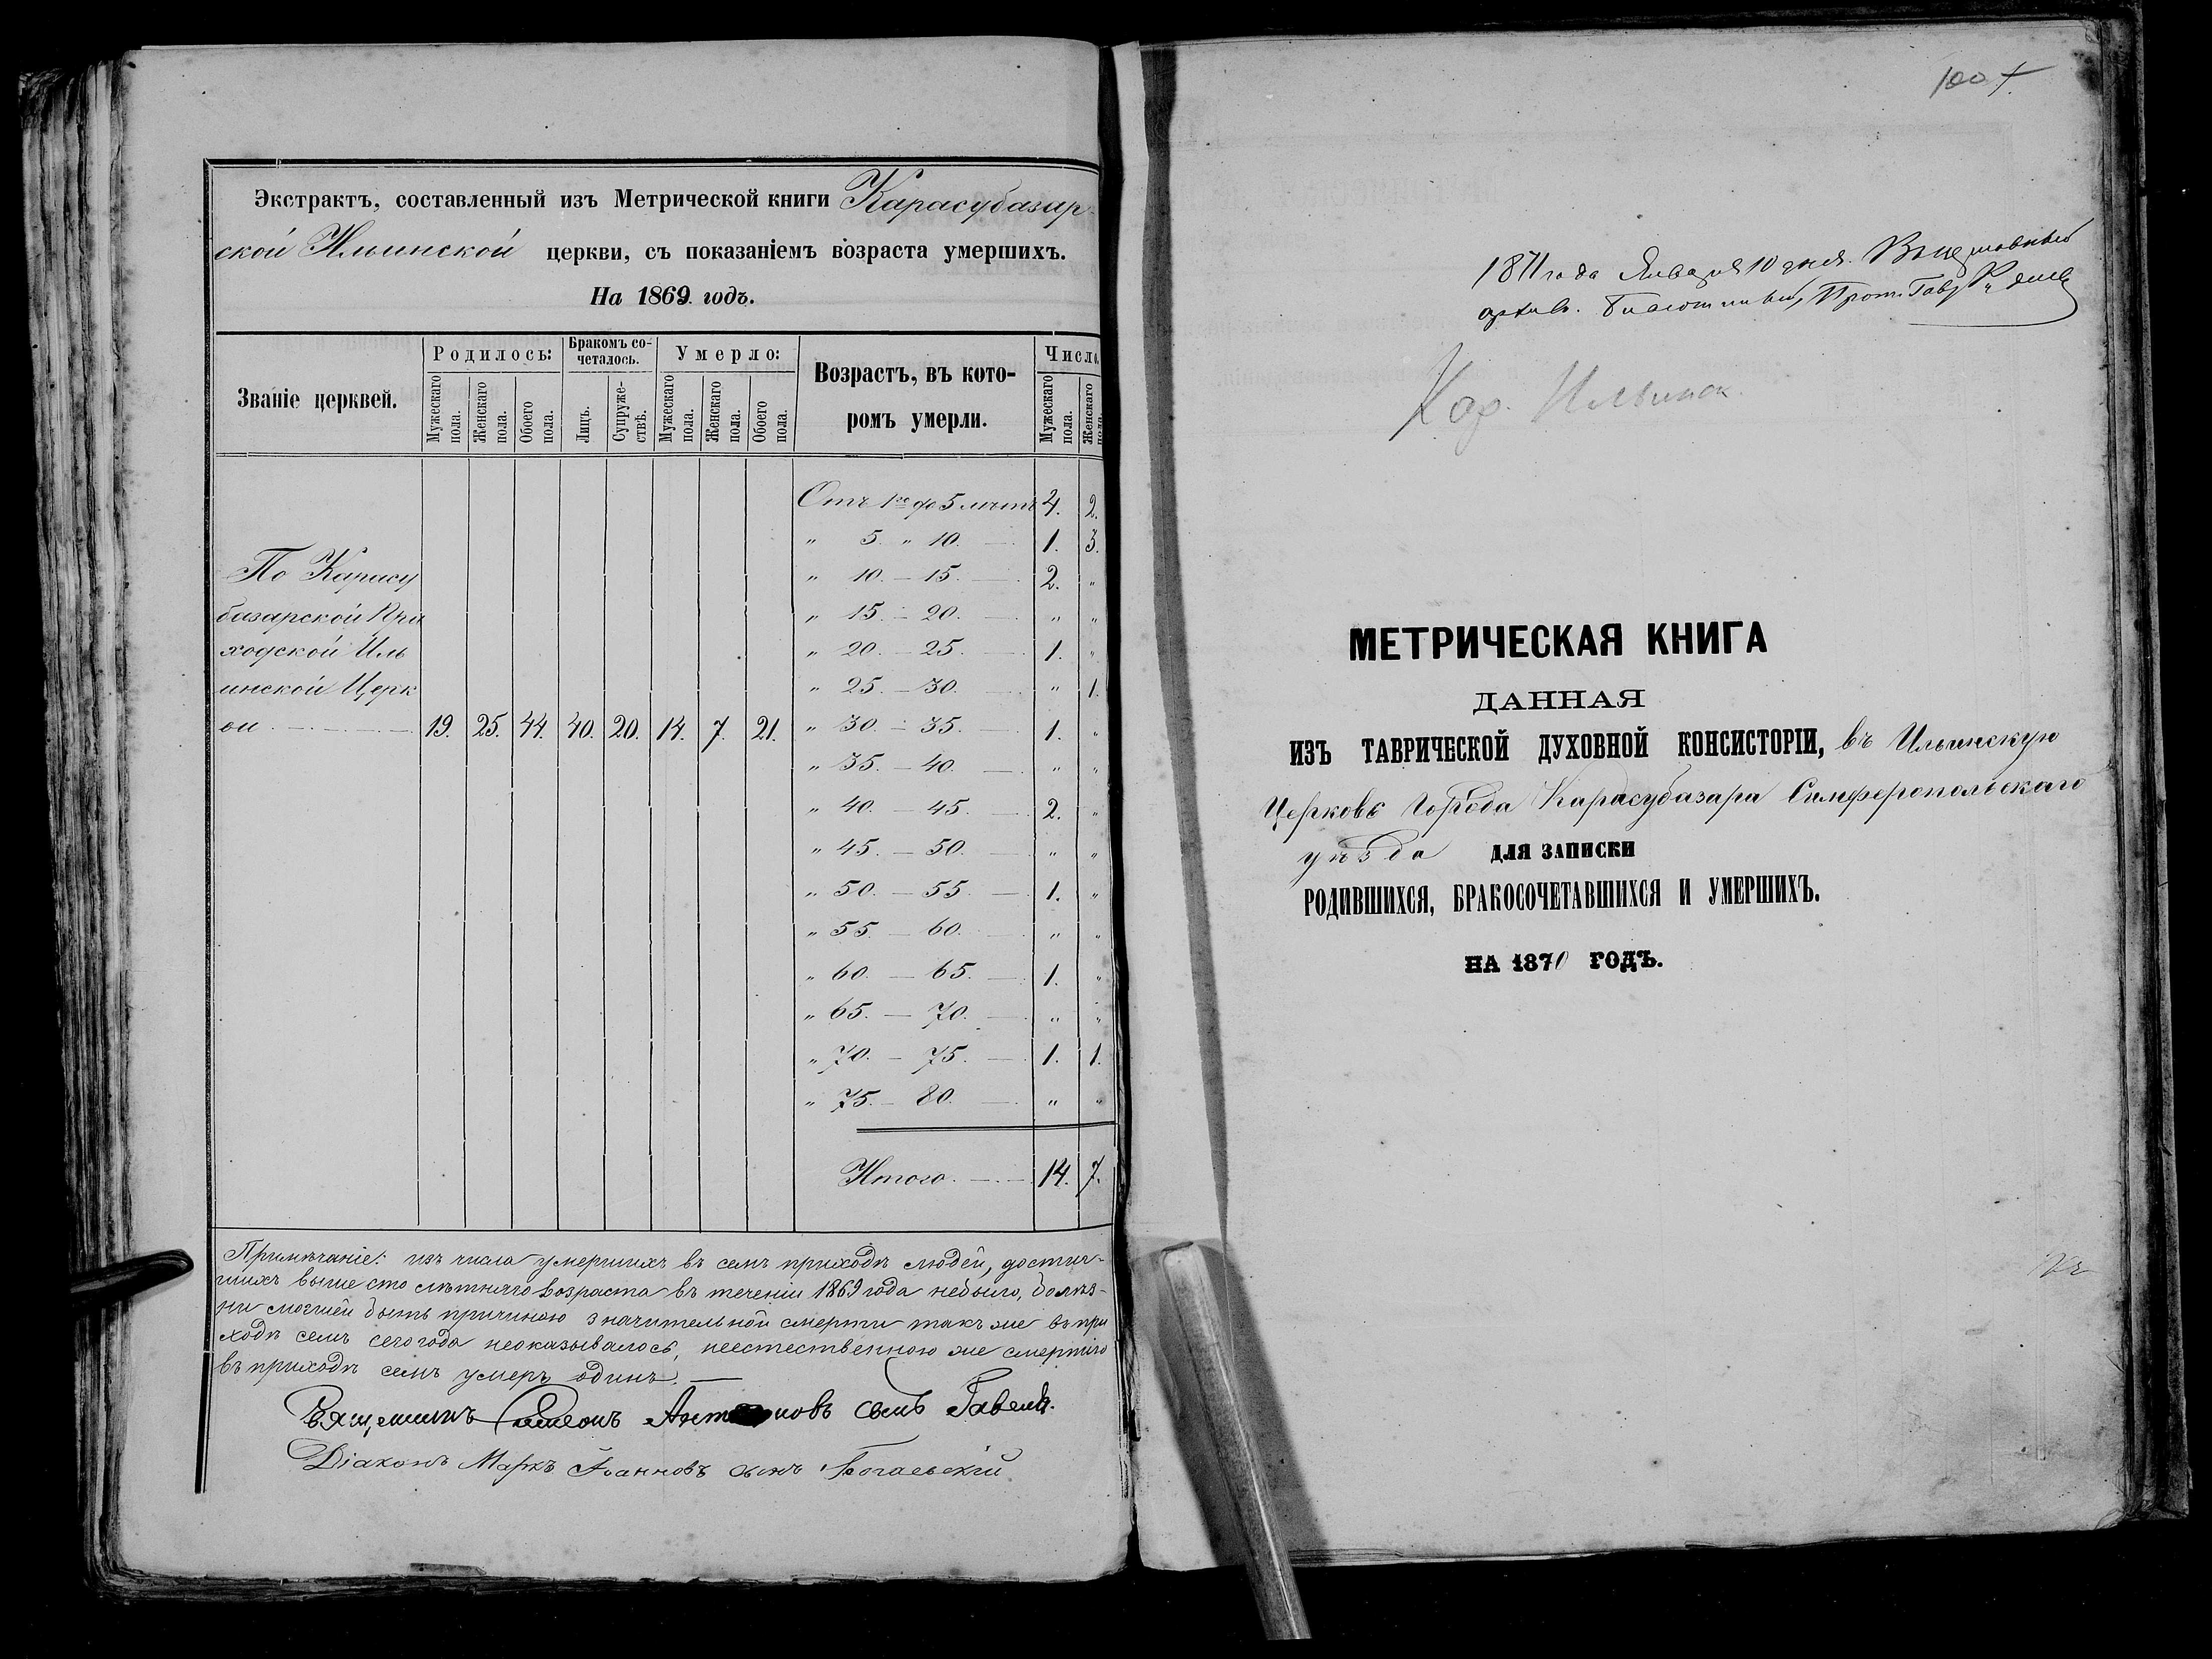 Экстрактъ, составленный изъ Метрической книги Карасубазар-
ской Ильинской церкви, съ показаніемъ возраста умершихъ.
На 1869 годъ.
Званіе церквей.
Родилось:
Бракомъ со-
четалось.
Умерло:
Возрастъ, въ кото-
ромъ умерли.
Число.
Мужескаго пола.
Женскаго пола.
Обоего пола.
Лицъ.
Супруже-
ствъ.
Мужескаго пола.
Женскаго пола.
Обоего пола.
Мужескаго пола.
Женскаго пола.
Отъ 1го до 5 лѣтъ 4. 2.
„ 5. „ 10. — 1. 3.
По Карасу
„ 10. — 15. — 2. „
базарской При
„ 15. — 20. — „ „
ходской Иль
„ 20. — 25. — 1. „
инской Церк
„ 25. — 30. — „ 1.
ви 19. 25. 44. 40. 20. 14. 7. 21. „ 30. — 35. — 1. „
„ 35. — 40. — „ „
„ 40. — 45. — 2. „
„ 45. — 50. — „ „
„ 50. — 55. — 1. „
„ 55. — 60. — „ „
„ 60. — 65. — 1. „
„ 65. — 70. — „ „
„ 70. — 75. — 1. 1.
„ 75. — 80. — „ „
Итого. — 14. 7.
Примѣчаніе: изъ числа умершихъ въ семъ приходѣ людей, достиг-
шихъ выше сто лѣтняго возраста въ теченіи 1869 года небыло, болѣз-
ни могшей быть причиною значительной смерти такъ же въ при
ходѣ семъ сего года неоказывалось, неестественною же смертію
въ приходѣ семъ умеръ одинъ. —
Священникъ Симеонъ сынъ
Діаконъ Маркъ Іоанновъ сынъ Богаевскій
100
1871 года Января 10 дня.
Кар. Ильинск.
МЕТРИЧЕСКАЯ КНИГА
ДАННАЯ
ИЗЪ ТАВРИЧЕСКОЙ ДУХОВНОЙ КОНСИСТОРІИ, въ Ильинскую
Церковь Города Карасубазара Симферопольскаго
уѣзда ДЛЯ ЗАПИСКИ
РОДИВШИХСЯ, БРАКОСОЧЕТАВШИХСЯ И УМЕРШИХЪ.
НА 1870 ГОДЪ.